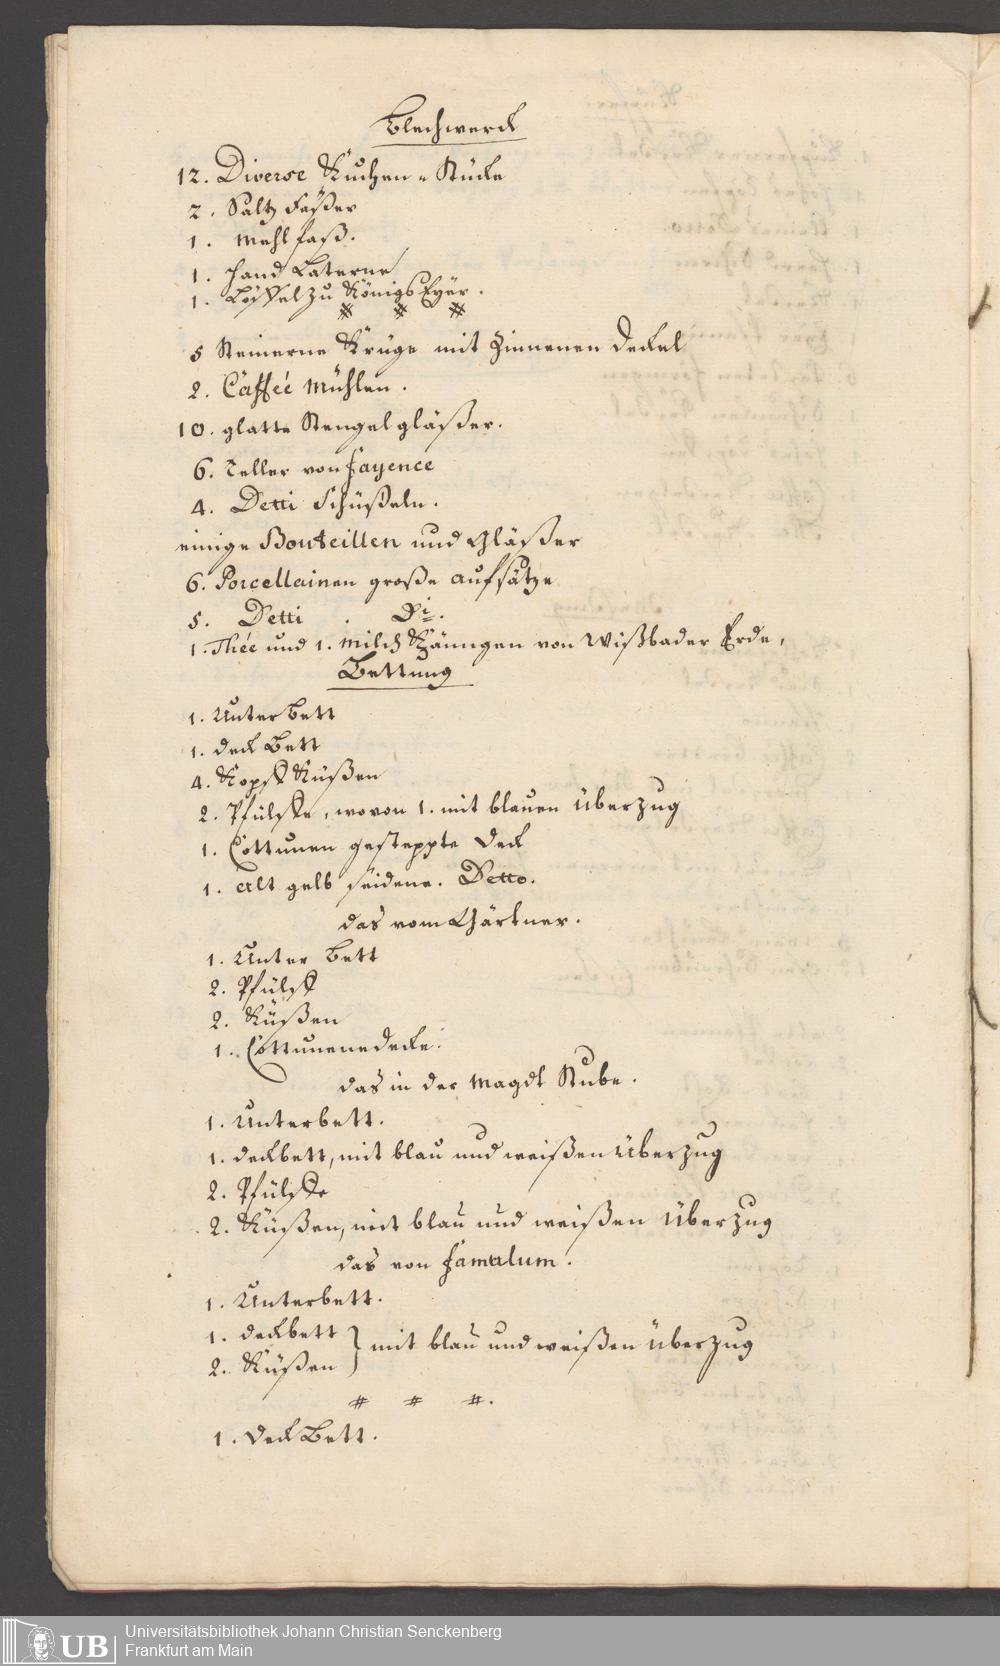 Blechwerck
12. Diverse Kuchen-Stücke
2. Saltz Fäßer
1. Mehl faß.
1. Hand Laterne
1. Löffel zu Königs Eyer.
# # #
5 Steinerne Krüge mit Zinnenen Deckel
2. Caffée Mühlen.
10. glatte Stengel gläßer.
6. Teller von Fayence
4. Detti Schüßeln.
einige Bouteillen und Gläßer
6. Porcellainen große Aufsätze
5. Detti . Di.
1. Thée und 1. Milch Känngen von Wißbader Erde,
Bettung
1. Unter Bett
1. Deck Bett
4. Kopff Küßen
2. Pfülffe, wovon 1. mit blauen Überzug
1. Cottunen gesteppte Deck
1. Alt gelb seidene. Detto.
das vom Gärtner.
1. Unter Bett
2. Pfülff
2. Küßen
1. Cottunene Decke.
das in der Magdt Stube.
1. Unterbett.
1. Deckbett, mit blau und weißen Überzug
2. Pfülffe
2. Küßen, mit blau und weißen Überzug
das von Famulum.
1. Unterbett.
1. Deckbett } mit blau und weißen Überzug
2. Küßen
# # #.
1. Deck Bett.
UB
Universitätsbibliothek Johann Christian Senckenberg
Frankfurt am Main